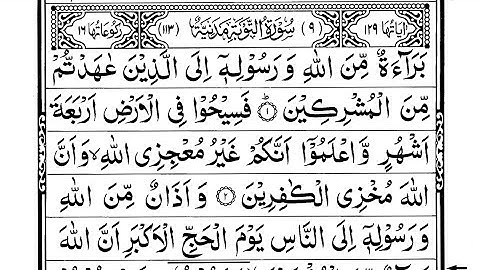 اٰيَاتُهَا ١٢٩ (٩) سُوْرَةُ التَّوْبَةِ مَدَنِيَّةٌ (١١٣) رُكُوْعَاتُهَا ١٦
بَرَآءَةٌ مِّنَ اللّٰهِ وَ رَسُوْلِهٖۤ اِلَى الَّذِيْنَ عٰهَدْتُّمْ
مِّنَ الْمُشْرِكِيْنَ ۝١ؕ فَسِيْحُوْا فِى الْاَرْضِ اَرْبَعَةَ
اَشْهُرٍ وَّ اعْلَمُوْۤا اَنَّكُمْ غَيْرُ مُعْجِزِى اللّٰهِ ۙ وَ اَنَّ
اللّٰهَ مُخْزِى الْكٰفِرِيْنَ ۝٢ وَ اَذَانٌ مِّنَ اللّٰهِ
وَ رَسُوْلِهٖۤ اِلَى النَّاسِ يَوْمَ الْحَجِّ الْاَكْبَرِ اَنَّ اللّٰهَ